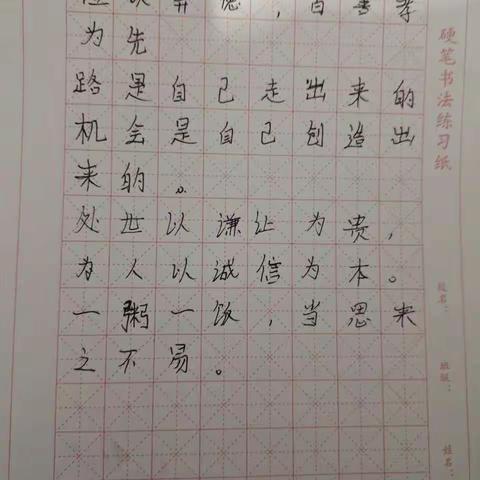 ，百善孝
为先
路是自己走出来的
机会是自己创造出
来的。
处世以谦让为贵，
为人以诚信为本。
一粥一饭，当思来
之不易。
硬笔书法练习纸
姓名：
班级：
姓名：